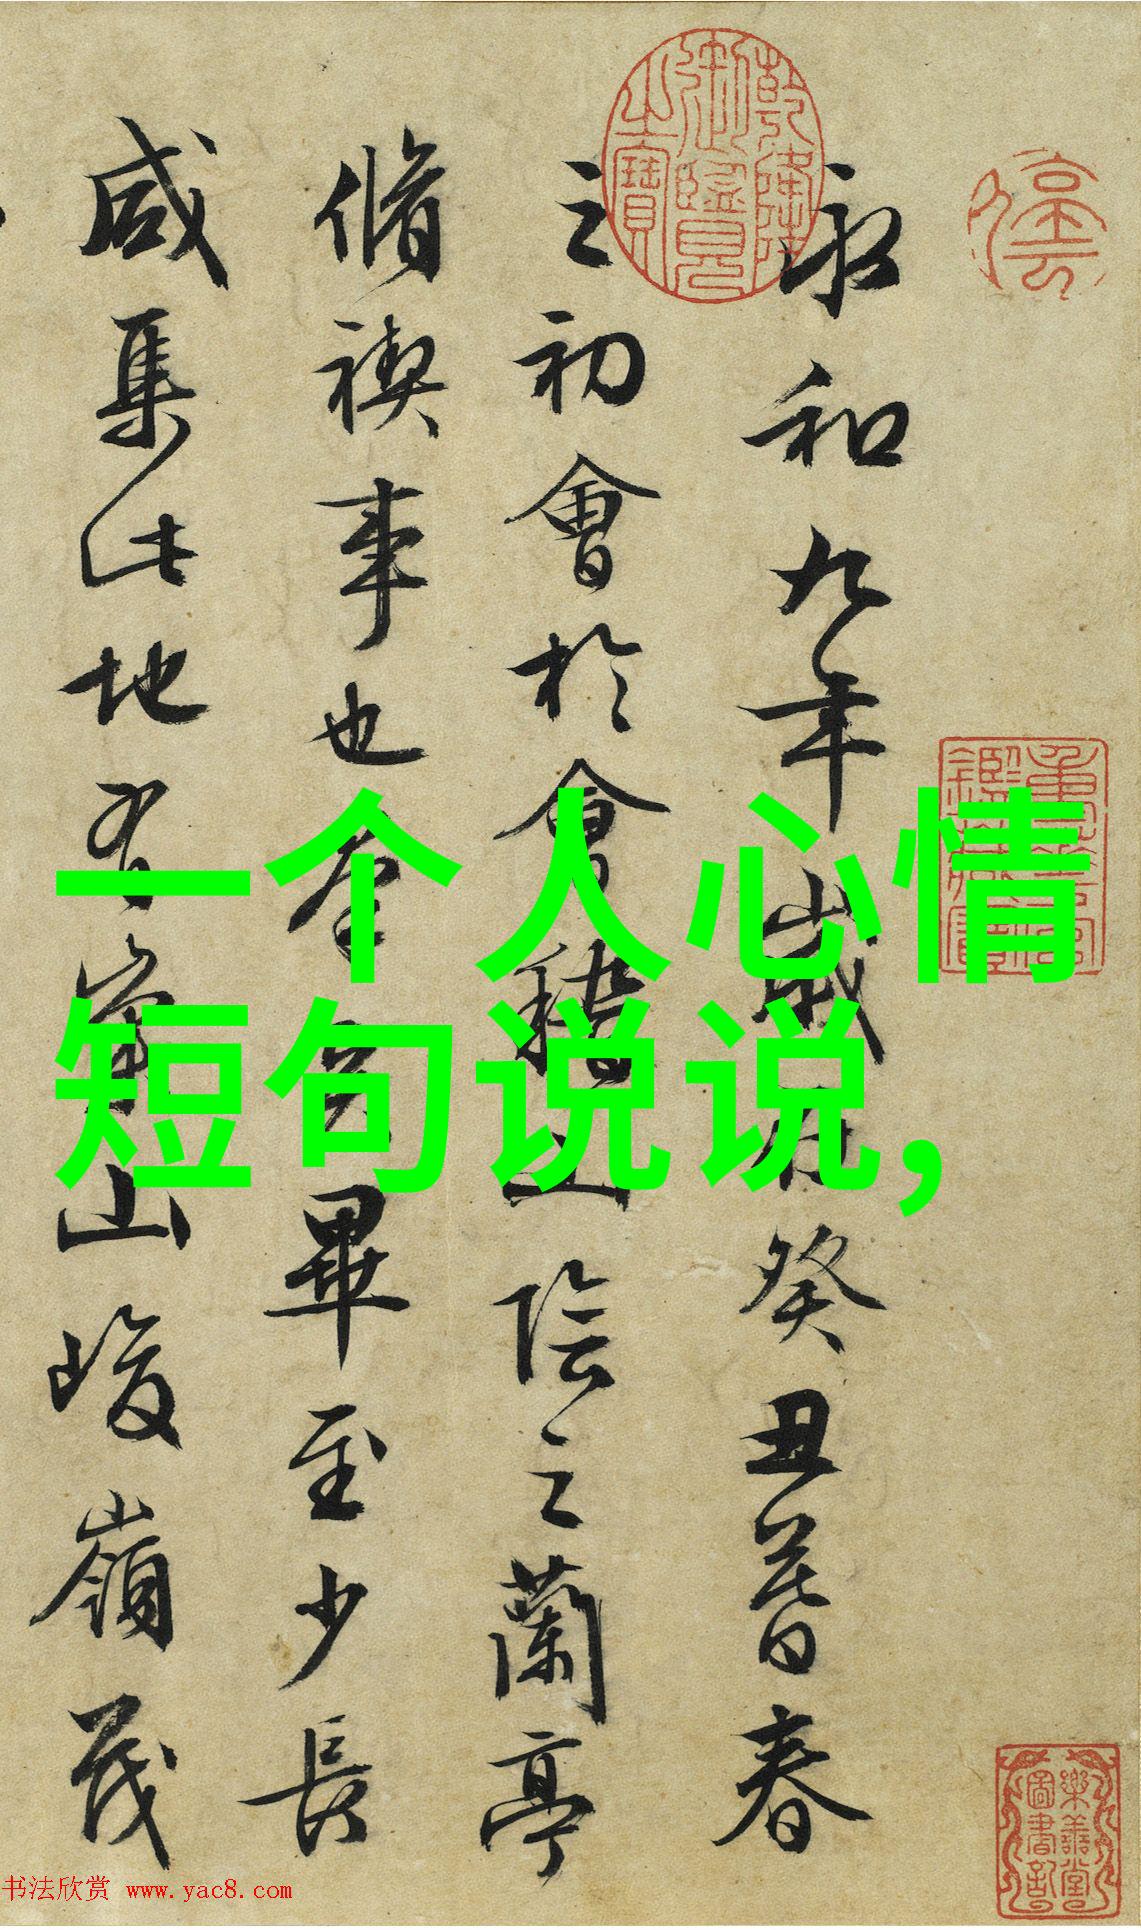 永和九年歲在癸丑暮春
之初會於會稽山陰之蘭亭
脩禊事也羣賢畢至少長
咸集此地有崇山峻嶺茂
乾隆御鑑之寶
樂善堂圖書記
一个人心情
短句说说,
书法欣赏 www.yac8.com